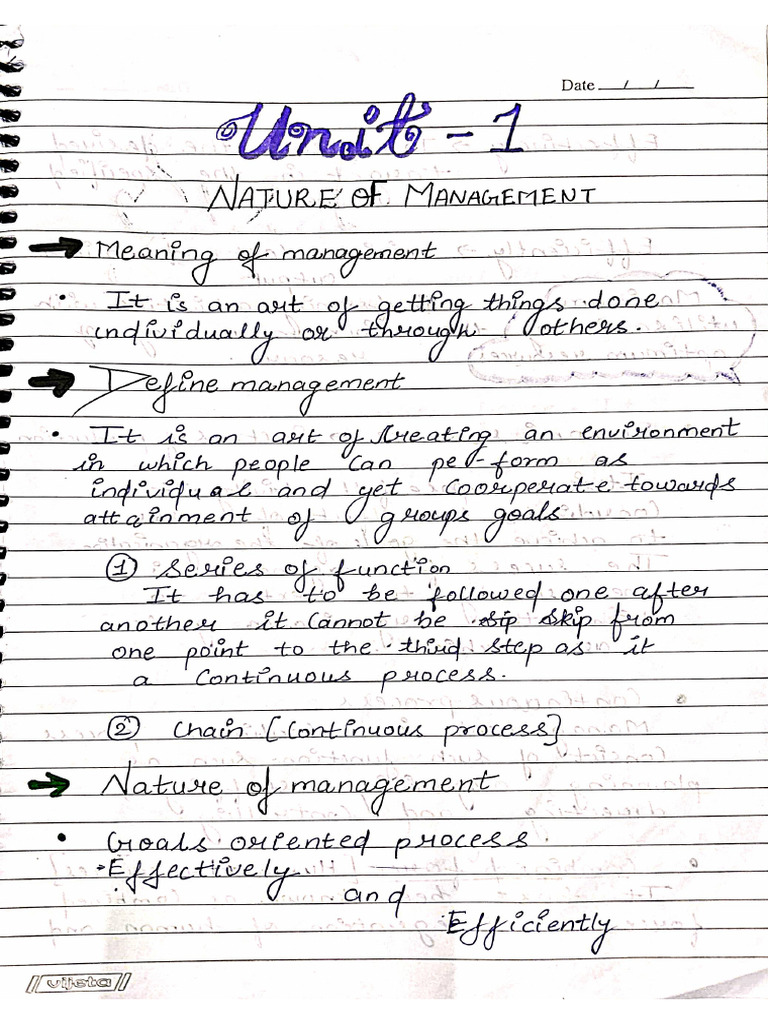 Date __/__/__
Unit - 1
NATURE OF MANAGEMENT
→ Meaning of management
• It is an art of getting things done
individually or through others.
→ Define management
• It is an art of Creating an environment
in which people can per-form as
individual and yet coorperate towards
attainment of groups goals
① Series of function
It has to be followed one after
another it cannot be sip skip from
one point to the third step as it
a continuous process.
② Chain [Continuous process]
→ Nature of management
• Goals oriented process.
• Effectively
and
Efficiently
vijeta